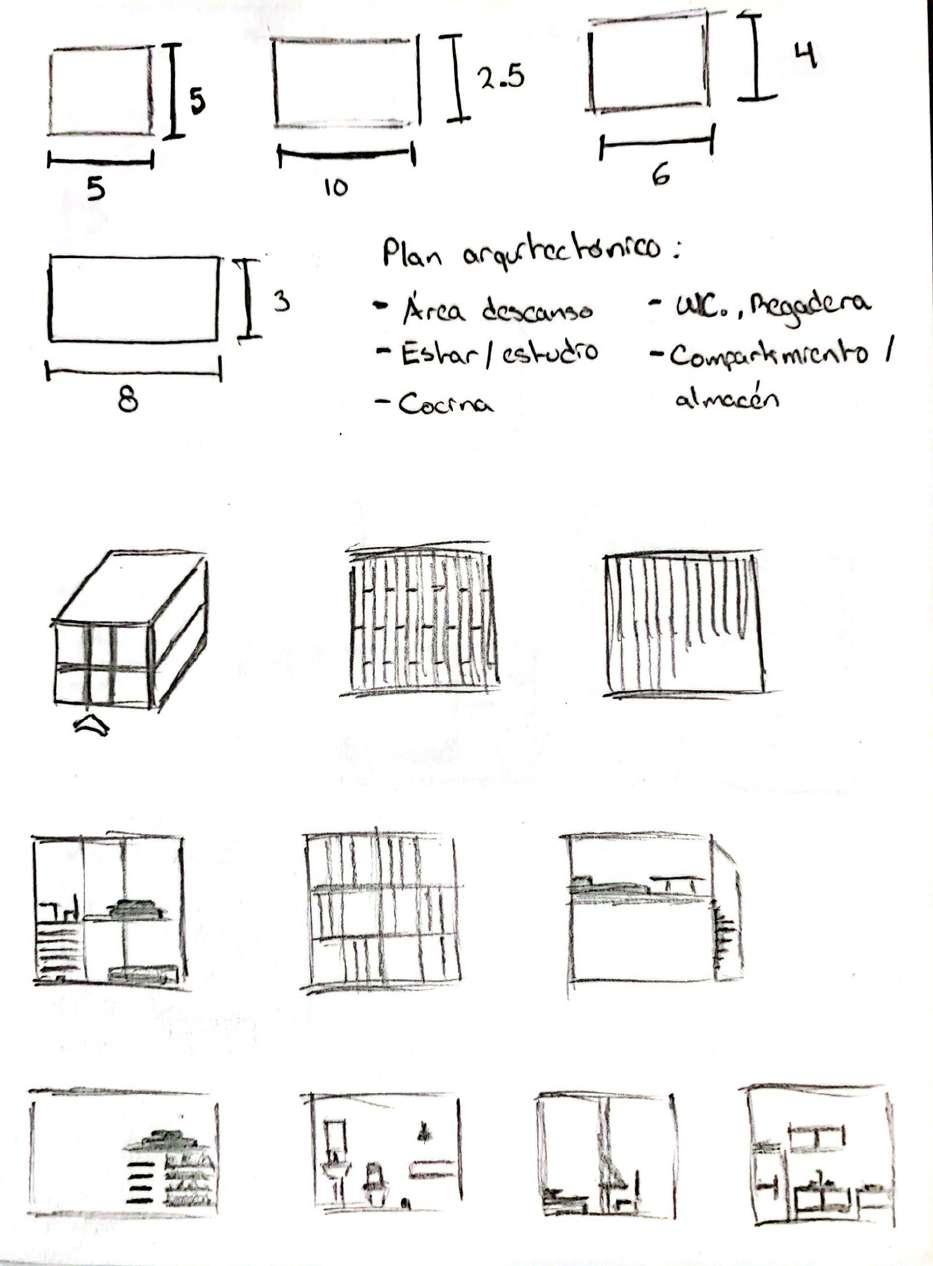 5
5
2.5
10
4
6
3
8
Plan arquitectónico:
- Área descanso
- Estar/estudio
- Cocina
- WC., Regadera
- Compartimiento /
almacén